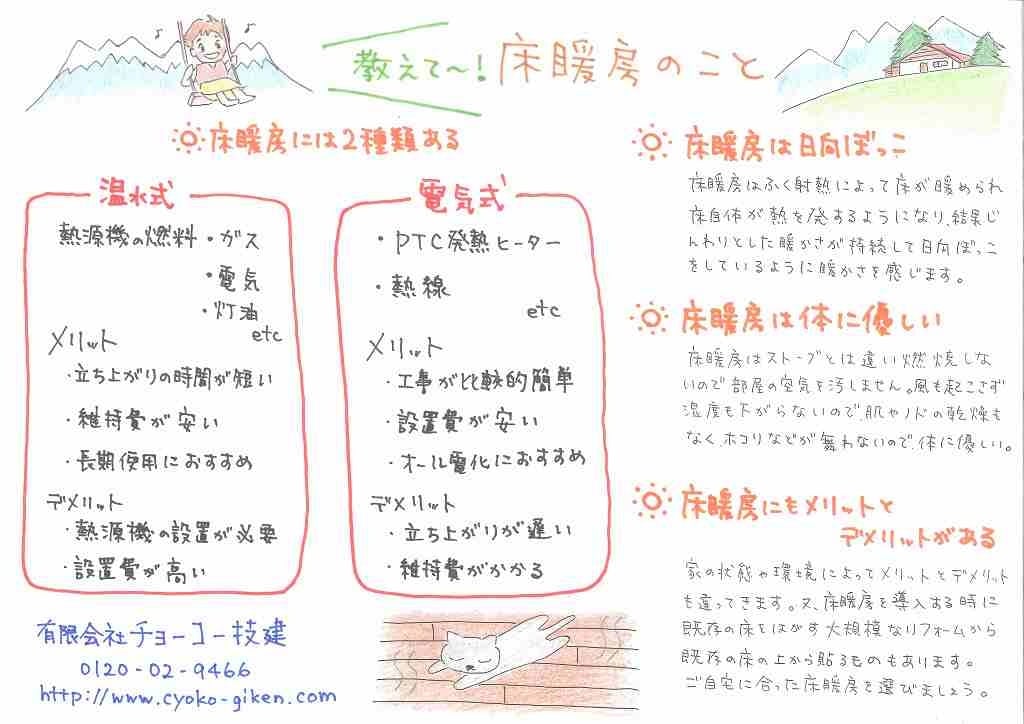 教えて〜!床暖房のこと
床暖房には2種類ある
温水式
熱源機の燃料・ガス
・電気
・灯油
etc
メリット
・立ち上がりの時間が短い
・維持費が安い
・長期使用におすすめ
デメリット
・熱源機の設置が必要
・設置費が高い
電気式
・PTC発熱ヒーター
・熱線
etc
メリット
・工事が比較的簡単
・設置費が安い
・オール電化におすすめ
デメリット
・立ち上がりが遅い
・維持費がかかる
有限会社チョーコー技建
0120-02-9466
http://www.cyoko-giken.com
床暖房は日向ぼっこ
床暖房はふく射熱によって床が暖められ
床自体が熱を発するようになり、結果じ
んわりとした暖かさが持続して日向ぼっこ
をしているように暖かさを感じます。
床暖房は体に優しい
床暖房はストーブとは違い燃焼しな
いので部屋の空気を汚しません。風も起こさず
湿度も下がらないので、肌やノドの乾燥も
なく、ホコリなどが舞わないので、体に優しい。
床暖房にもメリットと
デメリットがある
家の状態や環境によってメリットとデメリット
も違ってきます。又、床暖房を導入する時に
既存の床をはがす大規模なリフォームから
既存の床の上から貼るものもあります。
ご自宅に合った床暖房を選びましょう。